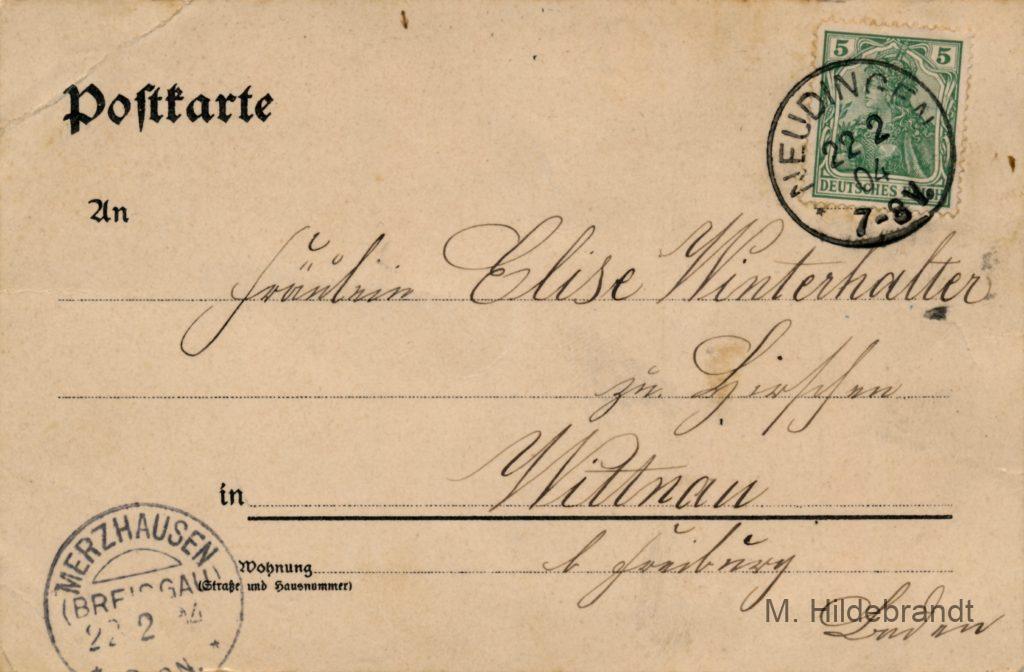 Postkarte
5 5
DEUTSCHES REICH
NEUDINGEN
22 2
04
7-8V.
An
Fräulein Elise Winterhalter
zu Hirschen
in Wittnau
Wohnung
(Straße und Hausnummer)
b. Freiburg
Baden
MERZHAUSEN
(BREISGAU)
22 2 04
M. Hildebrandt